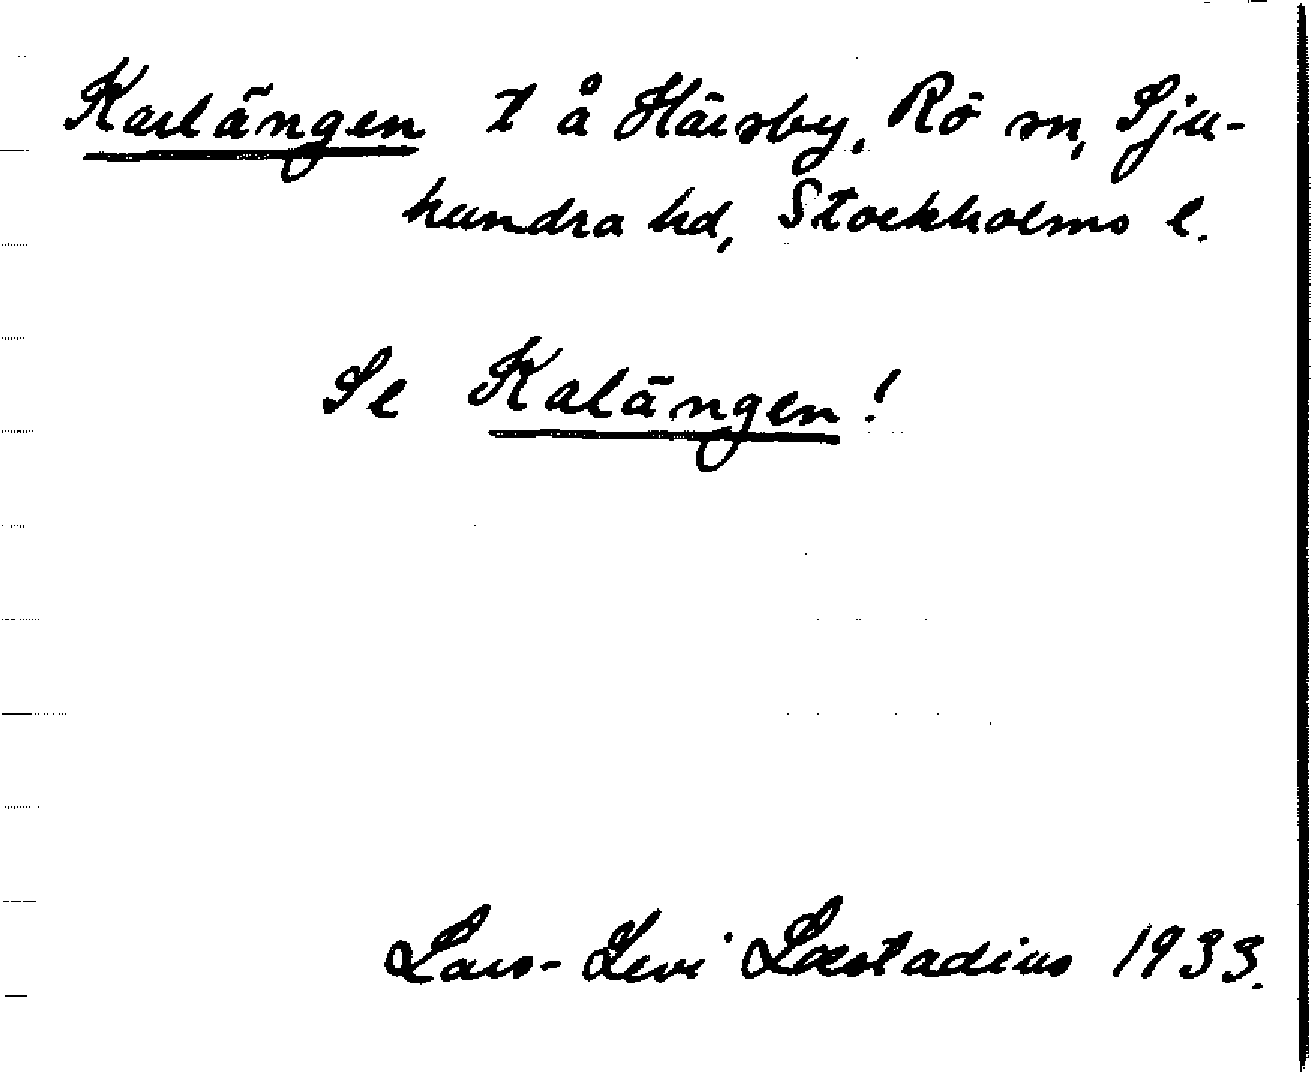 Karlängen t å Häersby, Rö sn, Sju-
hundra hd, Stockholms l.
Se Kalängen!
Lars-Levi Læstadius 1933.